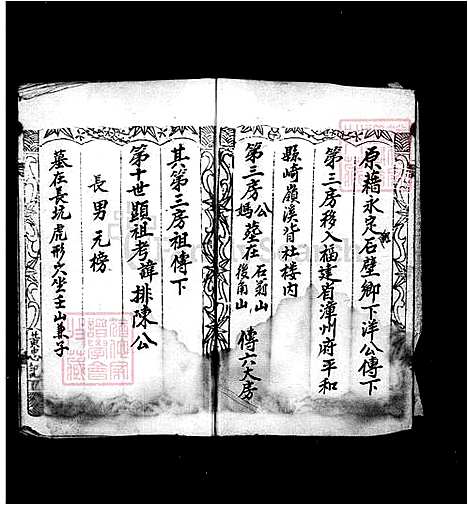 原藉永定石壁鄉下洋公傳下
第三房移入福建省漳州府平和
縣崎嶺溪背社樓內
第三房公媽墓在石荊山後角山 傳六大房
其第三房祖傳下
第十世顯祖考諱排陳公
長男元榜
墓在長坑虎形穴坐壬山兼子